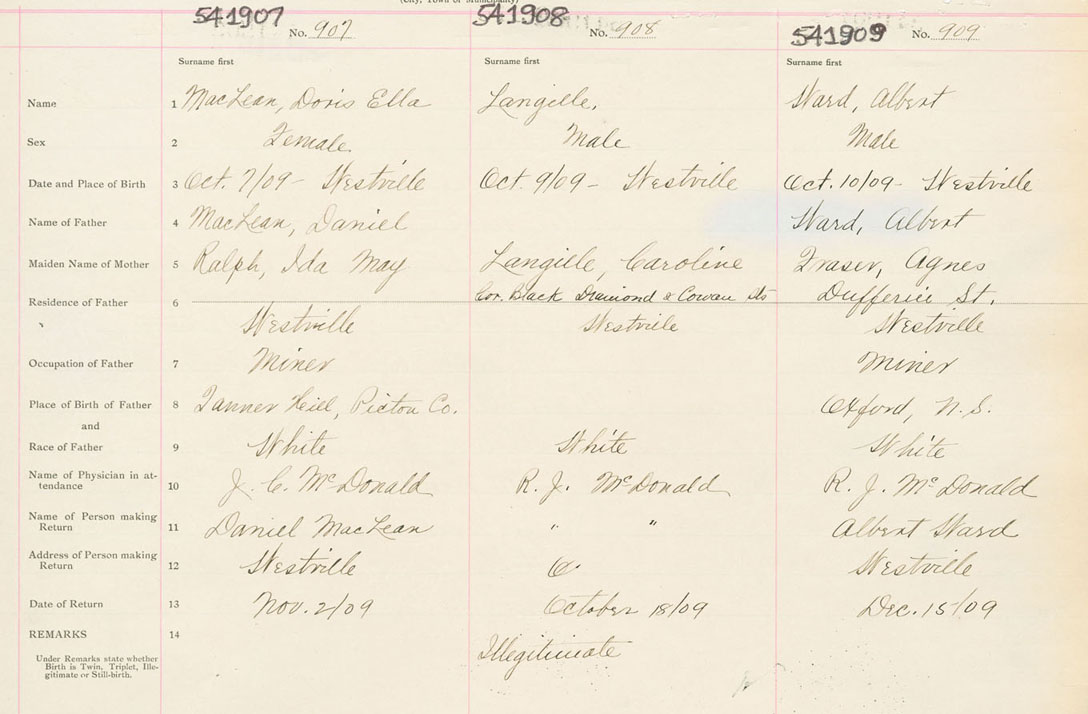 (City, Town or Municipality)
541907 541908 541909
No. 907 No. 908 No. 909
Surname first Surname first Surname first
Name 1 MacLean, Doris Ella Langille, Ward, Albert
Sex 2 Female Male Male
Date and Place of Birth 3 Oct. 7/09 - Westville Oct. 9/09 - Westville Oct. 10/09 - Westville
Name of Father 4 MacLean, Daniel Ward, Albert
Maiden Name of Mother 5 Ralph, Ida May Langille, Caroline Fraser, Agnes
Residence of Father 6 Cor. Black Diamond & Cowan Sts Dufferin St.
Westville Westville Westville
Occupation of Father 7 Miner Miner
Place of Birth of Father 8 Tanner Hill, Pictou Co. Oxford, N.S.
and
Race of Father 9 White White White
Name of Physician in at-
tendance 10 J. C. McDonald R. J. McDonald R. J. McDonald
Name of Person making
Return 11 Daniel MacLean " " Albert Ward
Address of Person making
Return 12 Westville Westville
Date of Return 13 Nov. 2/09 October 18/09 Dec. 15/09
REMARKS 14
Illegitimate
Under Remarks state whether
Birth is Twin, Triplet, Ille-
gitimate or Still-birth.